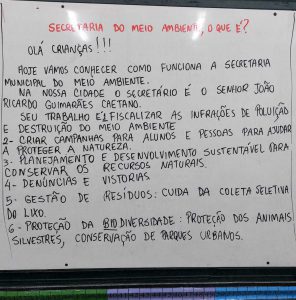 SECRETARIA DO MEIO AMBIENTE, O QUE É?
OLÁ CRIANÇAS!!!
HOJE VAMOS CONHECER COMO FUNCIONA A SECRETARIA
MUNICIPAL DO MEIO AMBIENTE.
NA NOSSA CIDADE O SECRETÁRIO É O SENHOR JOÃO
RICARDO GUIMARÃES CAETANO.
SEU TRABALHO É 1 FISCALIZAR AS INFRAÇÕES DE POLUIÇÃO
E DESTRUIÇÃO DO MEIO AMBIENTE
2- CRIAR CAMPANHAS PARA ALUNOS E PESSOAS PARA AJUDAR
A PROTEGER A NATUREZA.
3- PLANEJAMENTO E DESENVOLVIMENTO SUSTENTÁVEL PARA
CONSERVAR OS RECURSOS NATURAIS.
4- DENÚNCIAS E VISTORIAS.
5- GESTÃO DE RESÍDUOS: CUIDA DA COLETA SELETIVA
DO LIXO.
6- PROTEÇÃO DA BIODIVERSIDADE: PROTEÇÃO DOS ANIMAIS
SILVESTRES, CONSERVAÇÃO DE PARQUES URBANOS.